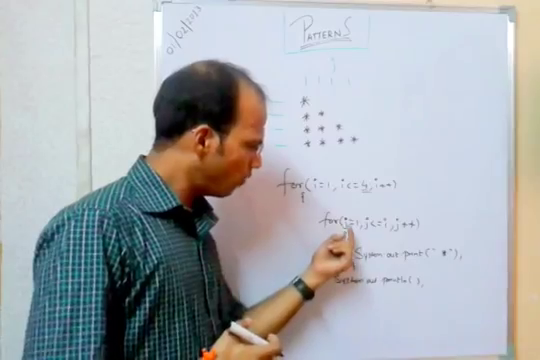 01/02/2013
PATTERNS
j
*
* *
* * *
* * * *
for(i=1, i<=4, i++)
{
for(j=1, j<=i, j++)
System.out.print(" *");
System.out.println();